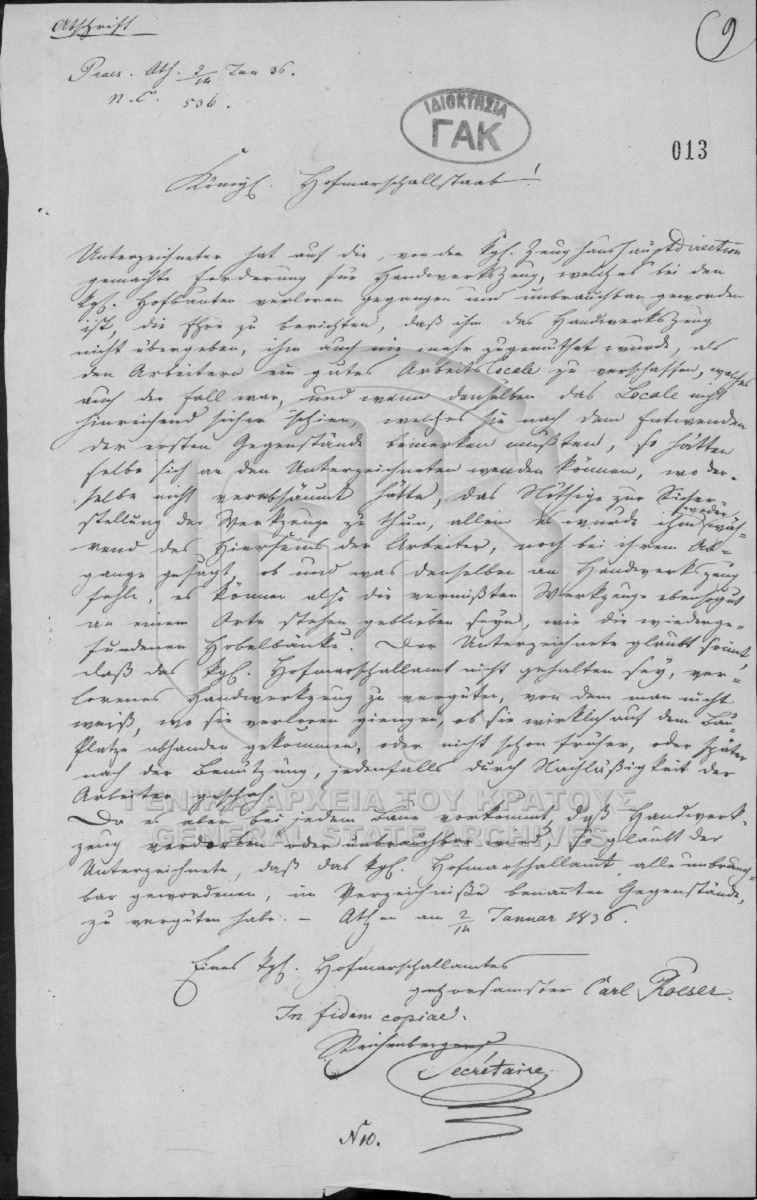 Abschrift
9
Praes. Ath. 2/14 Jan 36.
n. C. 536.
ΙΔΙΟΚΤΗΣΙΑ
ΓΑΚ
013
Königl. Hofmarschallstaab!
Unterzeichneter hat auf die, von der kgl. Zeughaushauptdirection
gemachte Forderung für Handwerkszeug, welches bei den
kgl. Hofbauten verloren gegangen und unbrauchbar geworden
ist, die Ehre zu berichten, daß ihm das Handwerkszeug
nicht übergeben, ihm auch nie mehr zugemuthet wurde, als
den Arbeitern ein gutes Arbeits Locale zu verschaffen, welches
auch der Fall war, und wenn denselben das Locale nicht
hinreichend sicher schien, welches sie nach dem Entwenden
der ersten Gegenstände bemerken mußten, so hätten
selbe sich an den Unterzeichneten wenden können, wo der-
selbe nicht verabsäumt hätte, das Nöthige zur Sicher-
stellung der Werkzeuge zu thun, allein es wurde ihm weder wäh-
rend des Hierseins der Arbeiter, noch bei ihrem Ab-
gange gesagt, ob und was denselben an Handwerkszeug
fehle, es können also die vermißten Werkzeuge ebensogut
an einem Orte stehen geblieben seyn, wie die wiederge-
fundenen Hobelbänke. Der Unterzeichnete glaubt somit,
daß das kgl. Hofmarschallamt nicht gehalten sey, ver-
lorenes Handwerkzeug zu vergüten, von dem man nicht
weiß, wo sie verloren giengen, ob sie wirklich auf dem Bau-
Platze abhanden gekommen, oder nicht schon früher, oder später
nach der Benützung, jedenfalls durch Nachläßigkeit der
Arbeiter geschah.
Da es aber bei jedem Baue vorkommt, daß Handwerk-
zeug verdorben oder unbrauchbar wird, so glaubt der
Unterzeichnete, daß das kgl. Hofmarschallamt alle unbrauch-
bar gewordenen, im Verzeichniße benannten Gegenstände,
zu vergüten habe. – Athen am 2/14 Januar 1836.
Eines kgl. Hofmarschallamtes
gehorsamster Carl Roeser.
In fidem copiae.
Reichenberger
Secrétaire
N 10.
ΓΕΝΙΚΑ ΑΡΧΕΙΑ ΤΟΥ ΚΡΑΤΟΥΣ
GENERAL STATE ARCHIVES